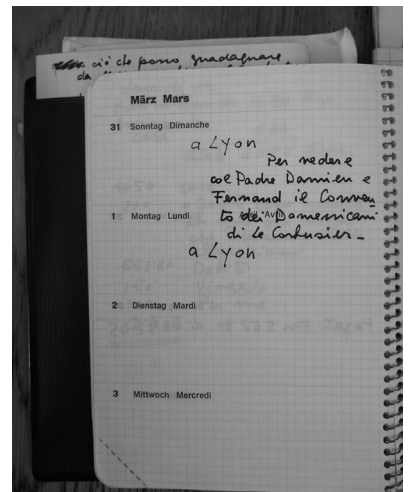 ciò che posso guadagnare
da
März Mars
31 Sonntag Dimanche
a Lyon
Per vedere
col Padre Damien e
Fernand il Conven
1 Montag Lundi
to dei Domenicani
di Le Corbusier_
a Lyon
2 Dienstag Mardi
3 Mittwoch Mercredi